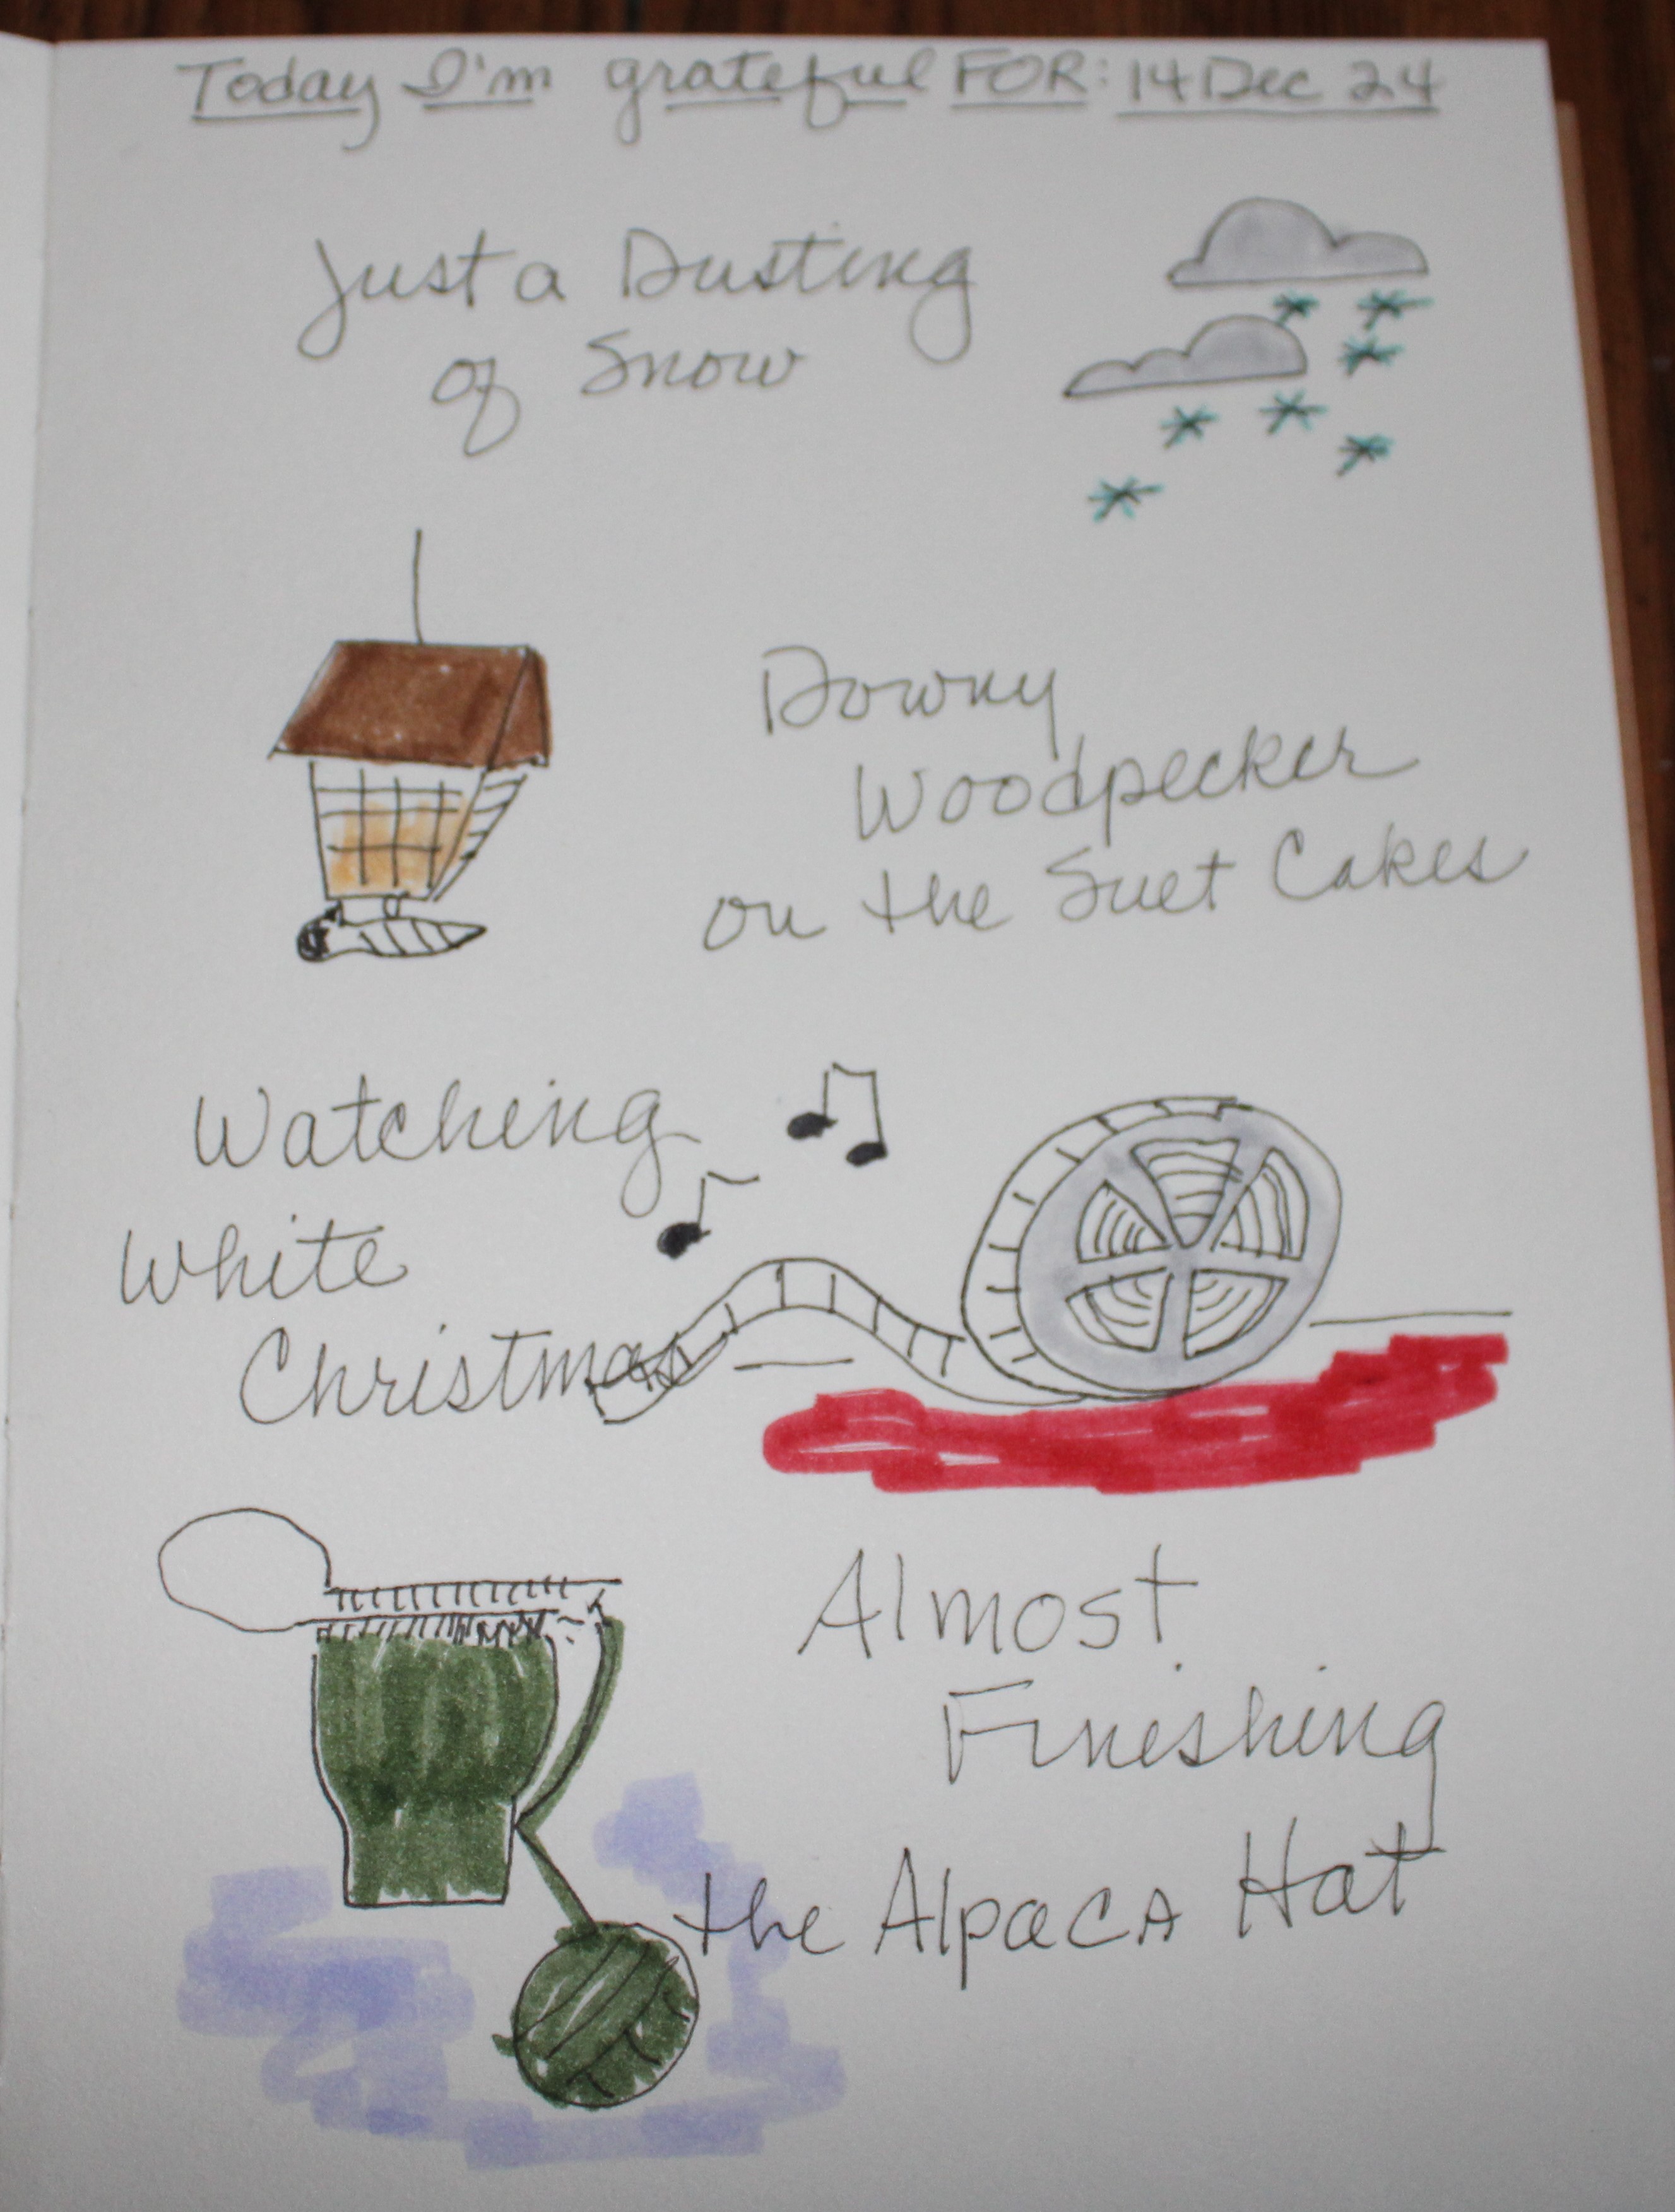 Today I'm grateful FOR: 14 Dec 24
Just a Dusting
of Snow
Downy
Woodpecker
on the Suet Cakes
Watching
White
Christmas
Almost
Finishing
the Alpaca Hat